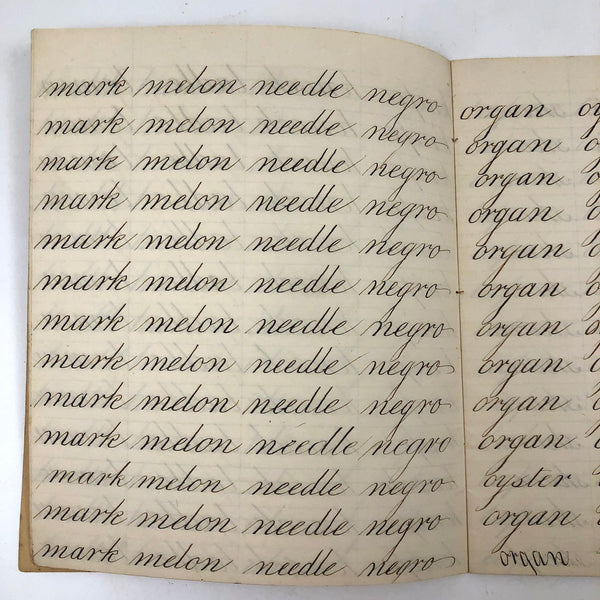 mark melon needle negro
mark melon needle negro
mark melon needle negro
mark melon needle negro
mark melon needle negro
mark melon needle negro
mark melon needle negro
mark melon needle negro
mark melon needle negro
mark melon needle negro
mark melon needle negro
mark melon needle negro
mark melon needle negro
organ
organ
organ
organ
organ
organ
organ
organ
organ
organ
oyster
organ
organ